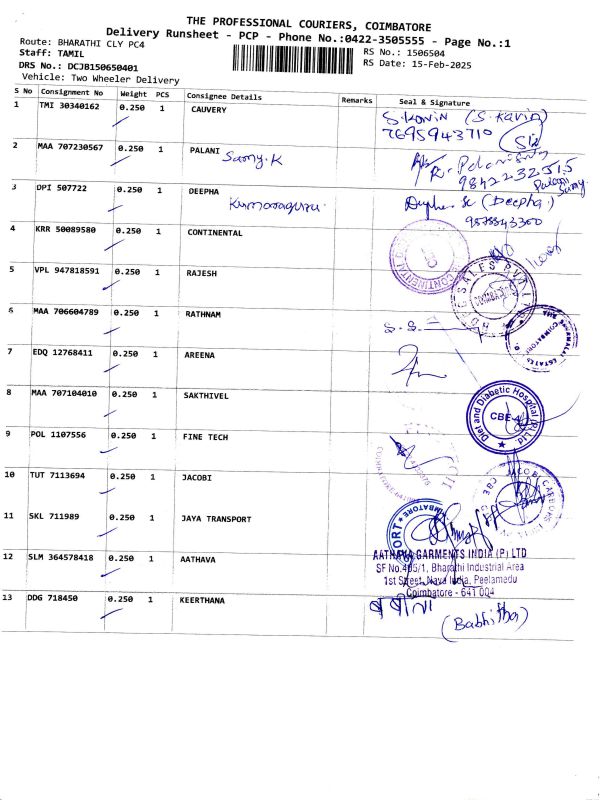 THE PROFESSIONAL COURIERS, COIMBATORE
Delivery Runsheet - PCP - Phone No.:0422-3505555 - Page No.:1
Route: BHARATHI CLY PC4 RS No.: 1506504
Staff: TAMIL RS Date: 15-Feb-2025
DRS No.: DCJB150650401
Vehicle: Two Wheeler Delivery
S No Consignment No Weight PCS Consignee Details Remarks Seal & Signature
1 TMI 30340162 0.250 1 CAUVERY S.KAVIN (S.Kavin)
7695943710
2 MAA 707230567 0.250 1 PALANI Samy.K
Palani Samy
3 DPI 507722 0.250 1 DEEPHA (Deepha.)
Kumaraguru.
4 KRR 50089580 0.250 1 CONTINENTAL CONTINENTAL
5 VPL 947818591 0.250 1 RAJESH SALES
6 MAA 706604789 0.250 1 RATHNAM COIMBATORE
7 EDQ 12768411 0.250 1 AREENA
8 MAA 707104010 0.250 1 SAKTHIVEL Diet and Diabetic Hospital (P) Ltd CBE
9 POL 1107556 0.250 1 FINE TECH
10 TUT 7113694 0.250 1 JACOBI JACOBI CARBONS CBE
11 SKL 711989 0.250 1 JAYA TRANSPORT
12 SLM 364578418 0.250 1 AATHAVA AATHAVA GARMENTS INDIA (P) LTD
SF No.405/1, Bharathi Industrial Area
1st Street, Nava India, Peelamedu
Coimbatore - 641 004
13 DDG 718450 0.250 1 KEERTHANA
(Babhitha)